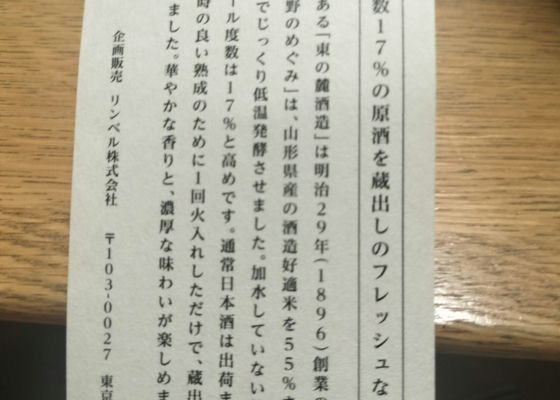 数17%の原酒を蔵出しのフレッシュな
ある「東の麓酒造」は明治29年(1896)創業の
野のめぐみ」は、山形県産の酒造好適米を55%ま
でじっくり低温発酵させました。加水していない
ール度数は17%と高めです。通常日本酒は出荷ま
時の良い熟成のために1回火入れしただけで、蔵出
ました。華やかな香りと、濃厚な味わいが楽しめま
企画販売 リンベル株式会社 〒103-0027 東京